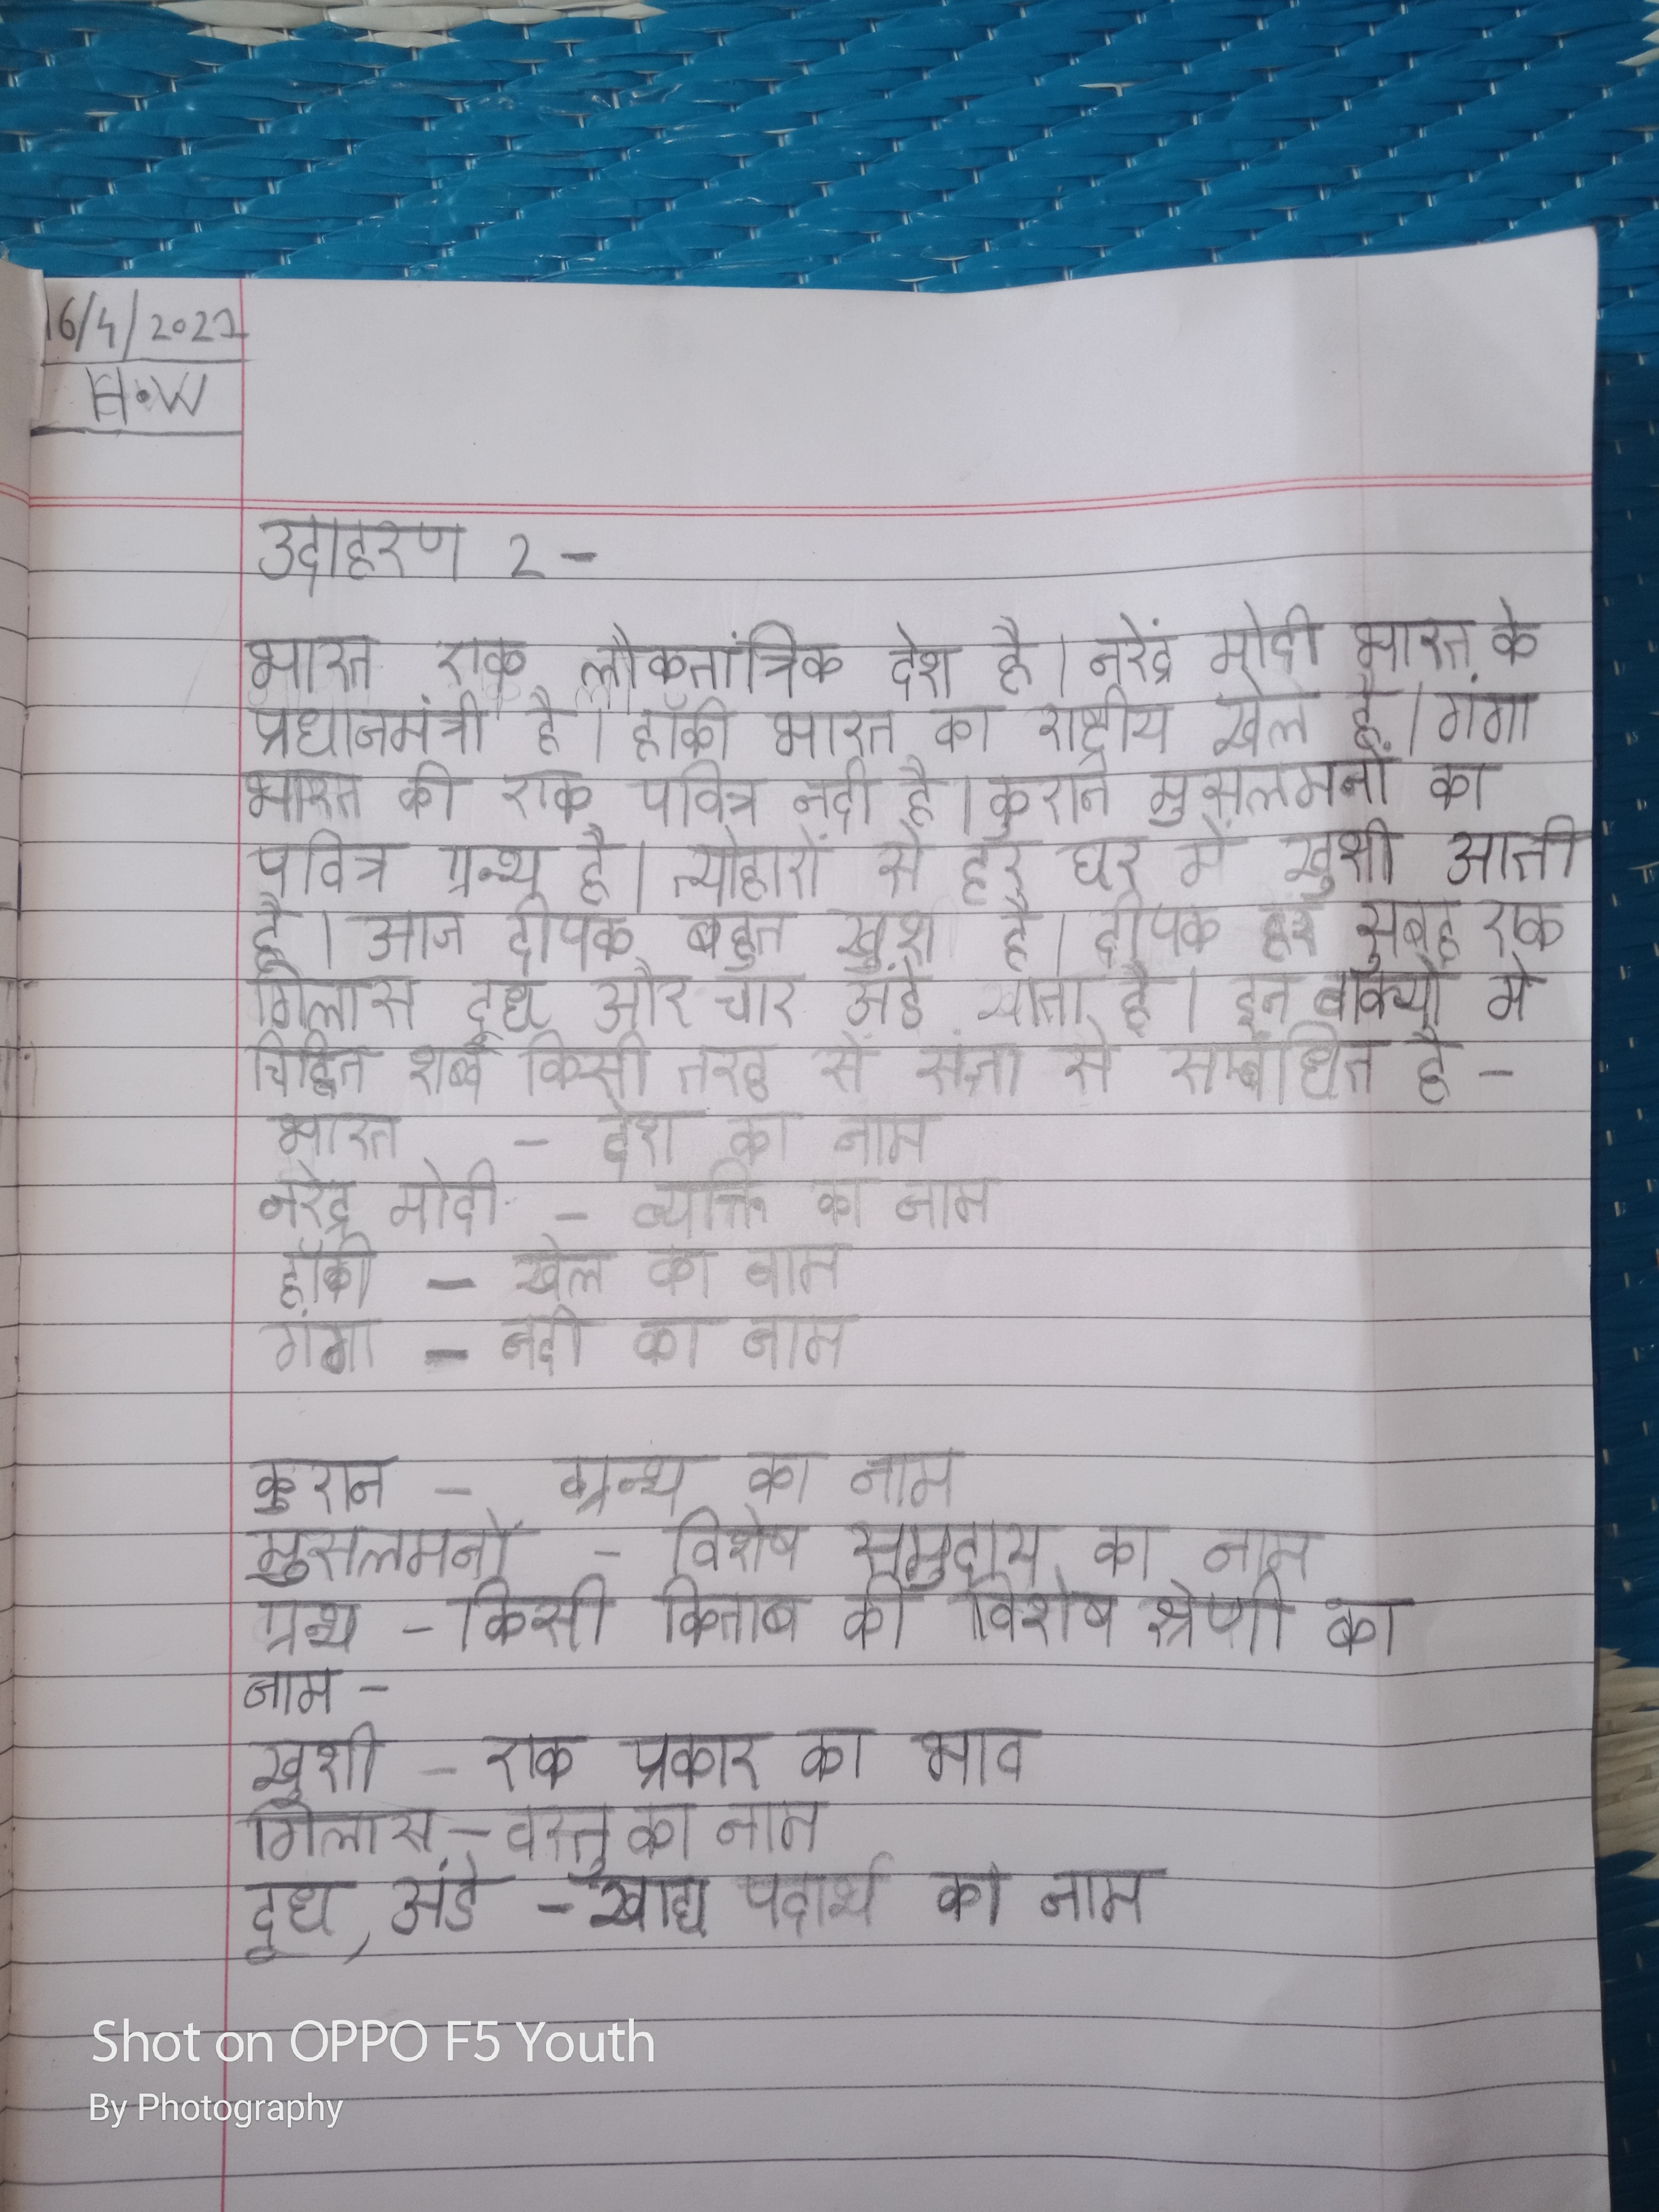 16/4/2021
H.W
उदाहरण 2 -
भारत एक लौकतांत्रिक देश है। नरेंद्र मोदी भारत के
प्रधानमंत्री है। हॉकी भारत का राष्ट्रीय खेल है। गंगा
भारत की एक पवित्र नदी है। कुरान मुसलमनों का
पवित्र ग्रन्थ है। त्योहारों से हर घर में खुशी आती
है। आज दीपक बहुत खुश है। दीपक हर सुबह एक
गिलास दूध और चार अंडे खाता है। इन वाक्यों में
चिह्नित शब्द किसी तरह सें संज्ञा से सम्बंधित है -
भारत - देश का नाम
नरेंद्र मोदी - व्यक्ति का नाम
हॉकी - खेल का नाम
गंगा - नदी का नाम
कुरान - ग्रन्थ का नाम
मुसलमनों - विशेष समुदाय का नाम
ग्रन्थ - किसी किताब की विशेष श्रेणी का
नाम -
खुशी - एक प्रकार का भाव
गिलास - वस्तु का नाम
दूध, अंडे - खाद्य पदार्थ का नाम
Shot on OPPO F5 Youth
By Photography